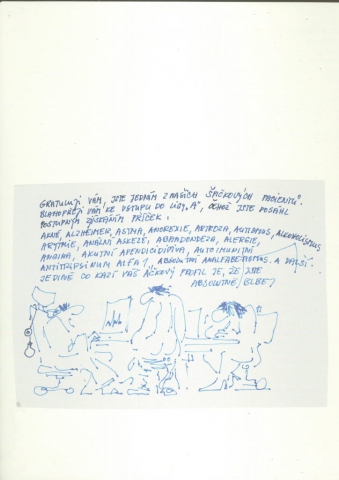 GRATULUJI VÁM, JSTE JEDNÍM Z NAŠICH ŠPIČKOVÝCH PACIENTŮ.
BLAHOPŘEJI VÁM KE VSTUPU DO LIGY „A", ČEHOŽ JSTE DOSÁHL
POSTUPNÝM ZÍSKÁNÍM PŘÍČEK:
AKNÉ, ALZHEIMER, ASTMA, ANOREXIE, AUTISMUS, ALKOHOLISMUS
ARYTMIE, ANÁLNÍ ASKEZE, ALERGIE,
ANGINA, AKUTNÍ APENDICIDITIDA, AUTOIMUNITNÍ
ANTITRIPSINUM ALFA 1, ABSOLUTNÍ ANALFABETISMUS. A DALŠÍ.
JEDINÉ CO KAZÍ VÁŠ ÁČKOVÝ PROFIL JE, ŽE JSTE
ABSOLUTNĚ BLBEJ